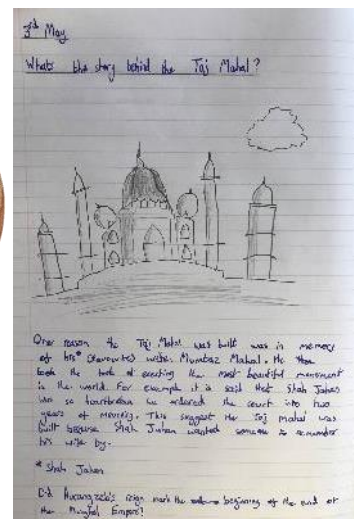 3rd May
Whats the story behind the Taj Mahal?
One reason the Taj Mahal was built was in memory
of his* favourite wife. Mumtaz Mahal. He then
took the task of erecting the most beautiful monument
in the world. For example it is said that Shah Jahan
was so heartbroken he ordered the court into two
years of . This suggest the Taj mahal was
built because Shah Jahan wanted someone to remember
his wife by.
* Shah Jahan
Did Aurangzeb's reign mark the beginning of the end of
the Mughal Empire?